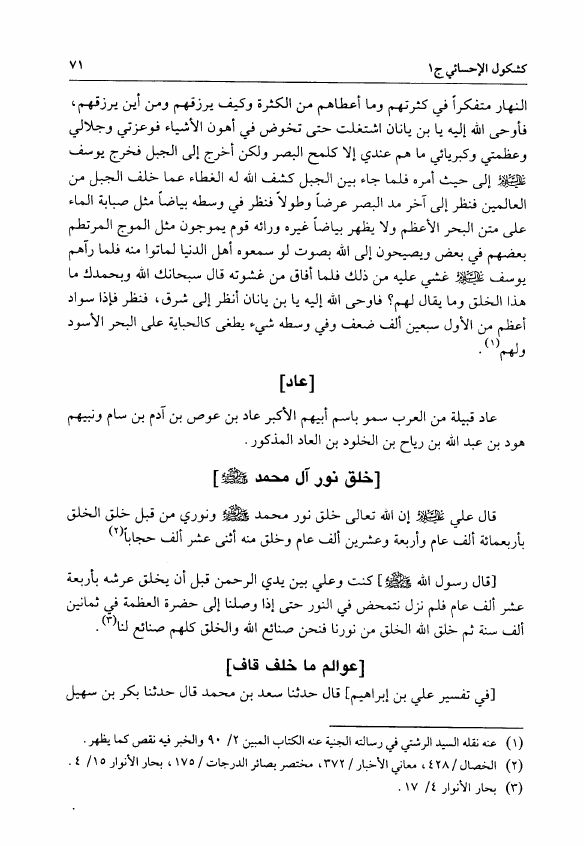 كشكول الإحسائي ج١ ٧١
النهار متفكراً في كثرتهم وما أعطاهم من الكثرة وكيف يرزقهم ومن أين يرزقهم،
فأوحى الله إليه يا بن يانان اشتغلت حتى تخوض في أهون الأشياء فوعزتي وجلالي
وعظمتي وكبريائي ما هم عندي إلا كلمح البصر ولكن أخرج إلى الجبل فخرج يوسف
عليه السلام إلى حيث أمره فلما جاء بين الجبل كشف الله له الغطاء عما خلف الجبل من
العالمين فنظر إلى آخر مد البصر عرضاً وطولاً فنظر في وسطه بياضاً مثل صبابة الماء
على متن البحر الأعظم ولا يظهر بياضاً غيره ورائه قوم يموجون مثل الموج المرتطم
بعضهم في بعض ويصيحون إلى الله بصوت لو سمعوه أهل الدنيا لماتوا منه فلما رآهم
يوسف عليه السلام غشي عليه من ذلك فلما أفاق من غشوته قال سبحانك الله وبحمدك ما
هذا الخلق وما يقال لهم؟ فاوحى الله إليه يا بن يانان أنظر إلى شرق، فنظر فإذا سواد
أعظم من الأول سبعين ألف ضعف وفي وسطه شيء يطغى كالحباية على البحر الأسود
ولهم(١).
[عاد]
عاد قبيلة من العرب سمو باسم أبيهم الأكبر عاد بن عوص بن آدم بن سام ونبيهم
هود بن عبد الله بن رياح بن الخلود بن العاد المذكور.
[خلق نور آل محمد ﷺ]
قال علي عليه السلام إن الله تعالى خلق نور محمد ﷺ ونوري من قبل خلق الخلق
بأربعمائة ألف عام وأربعة وعشرين ألف عام وخلق منه أثنى عشر ألف حجاباً(٢)
[قال رسول الله ﷺ] كنت وعلي بين يدي الرحمن قبل أن يخلق عرشه بأربعة
عشر ألف عام فلم نزل نتمحض في النور حتى إذا وصلنا إلى حضرة العظمة في ثمانين
ألف سنة ثم خلق الله الخلق من نورنا فنحن صنائع الله والخلق كلهم صنائع لنا(٣).
[عوالم ما خلف قاف]
[في تفسير علي بن إبراهيم] قال حدثنا سعد بن محمد قال حدثنا بكر بن سهيل
(١) عنه نقله السيد الرشتي في رسالته الجنية عنه الكتاب المبين ٢/ ٩٠ والخبر فيه نقص كما يظهر.
(٢) الخصال/ ٤٢٨، معاني الأخبار/ ٣٧٢، مختصر بصائر الدرجات/ ١٧٥، بحار الأنوار ١٥/ ٤.
(٣) بحار الأنوار ٤/ ١٧.